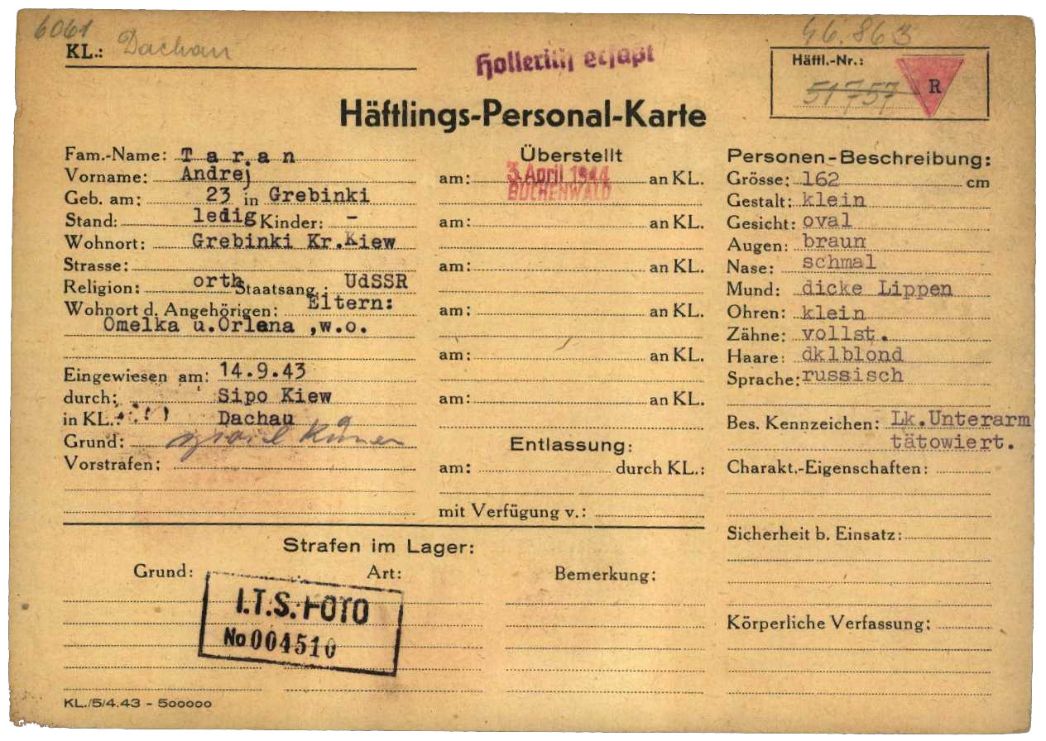 6061
KL.: Dachau
Hollerith erfaßt
46.863
Häftl.-Nr.:
51757
R
Häftlings-Personal-Karte
Fam.-Name: Taran
Vorname: Andrej
Geb. am: 23 in Grebinki
Stand: ledig Kinder: -
Wohnort: Grebinki Kr.Kiew
Strasse:
Religion: orth Staatsang.: UdSSR
Wohnort d. Angehörigen: Eltern:
Omelka u.Orlena ,w.o.
Eingewiesen am: 14.9.43
durch: Sipo Kiew
in KL.: Dachau
Grund:
Vorstrafen:
Überstellt
am: 3. April 1944 an KL.
BUCHENWALD
am: an KL.
am: an KL.
am: an KL.
am: an KL.
am: an KL.
Entlassung:
am: durch KL.:
mit Verfügung v.:
Personen-Beschreibung:
Grösse: 162 cm
Gestalt: klein
Gesicht: oval
Augen: braun
Nase: schmal
Mund: dicke Lippen
Ohren: klein
Zähne: vollst.
Haare: dklblond
Sprache: russisch
Bes. Kennzeichen: Lk.Unterarm
tätowiert.
Charakt.-Eigenschaften:
Sicherheit b. Einsatz:
Körperliche Verfassung:
Strafen im Lager:
Grund: Art: Bemerkung:
I.T.S. FOTO
No 004510
KL./5/4.43 - 500000